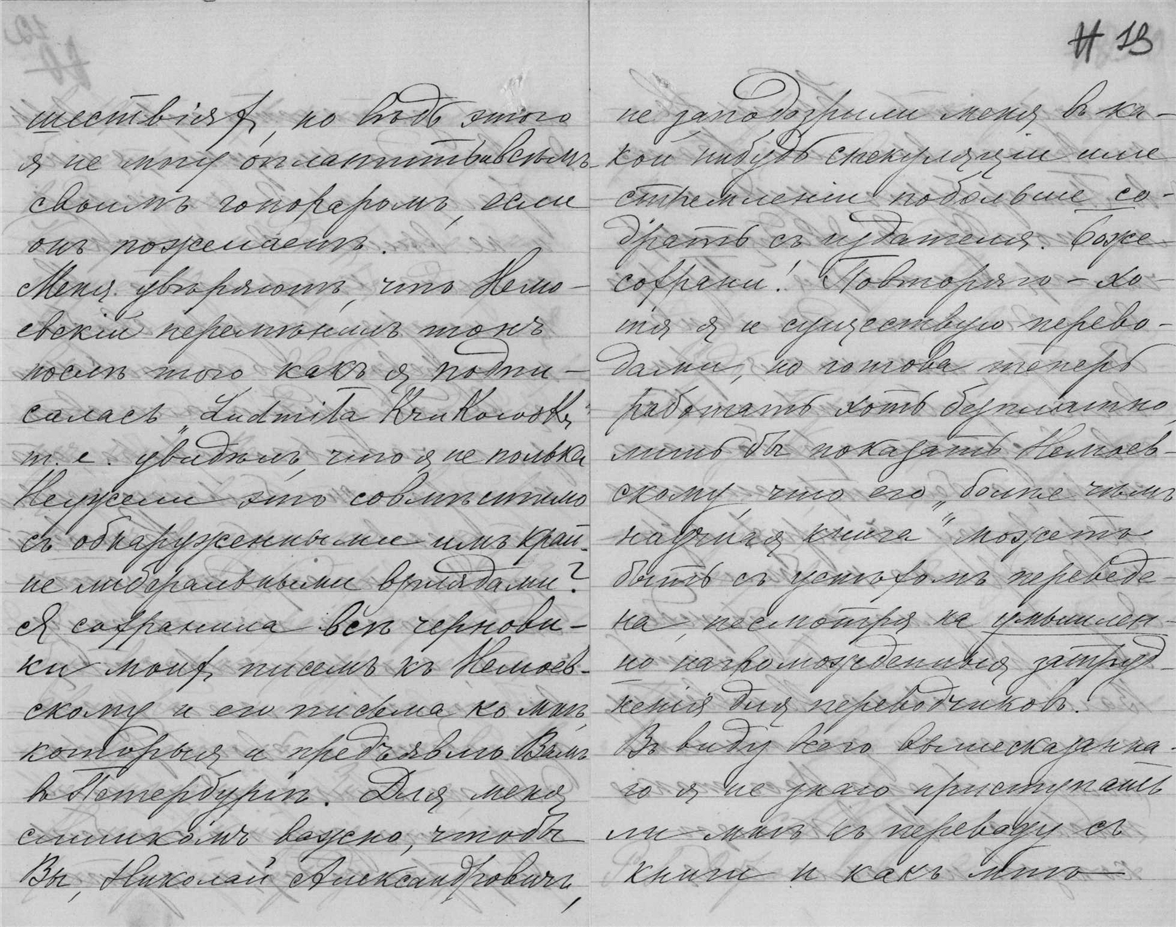 шествіях, но вѣдь этого
я не могу оплатить всѣмъ
своимъ гонораромъ, если
онъ пожелаетъ.
Меня увѣряютъ, что Немо-
евскій перемѣнилъ тонъ
послѣ того какъ я подпи-
салась „Ludmiła
т. е. увидѣлъ, что я не полька
Неужели это совмѣстимо
съ обнаруженными имъ край-
не либеральными взглядами?
Я сохранила всѣ чернови-
ки моих писемъ къ Немоев-
скому и его письма ко мнѣ
которыя и предъявлю Вамъ
въ Петербургѣ. Для меня
слишкомъ важно, чтобы
Вы, Николай Александровичъ,
# 13
не заподозрили меня въ ка-
кой нибудь спекуляціи или
стремленіи побольше со-
драть съ издателя. Боже
сохрани! Повторяю – хо-
тя я и существую перево-
дами, но готова теперь
работать хоть безплатно,
лишь бы показать Немоев-
скому, что его „болѣе чѣмъ
научная книга" можетъ
быть съ успѣхомъ переведе
на, несмотря на умышлен-
но нагроможденныя затруд
ненія для переводчиковъ.
Въ виду всего вышесказанна-
го я не знаю приступать
ли мнѣ къ переводу съ
книги и какъ мнѣ